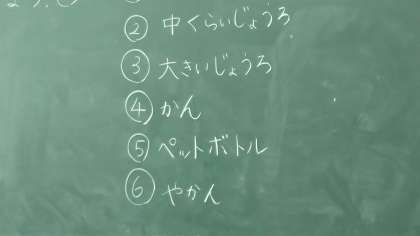 ② 中くらいじょうろ
③ 大きいじょうろ
④ かん
⑤ ペットボトル
⑥ やかん